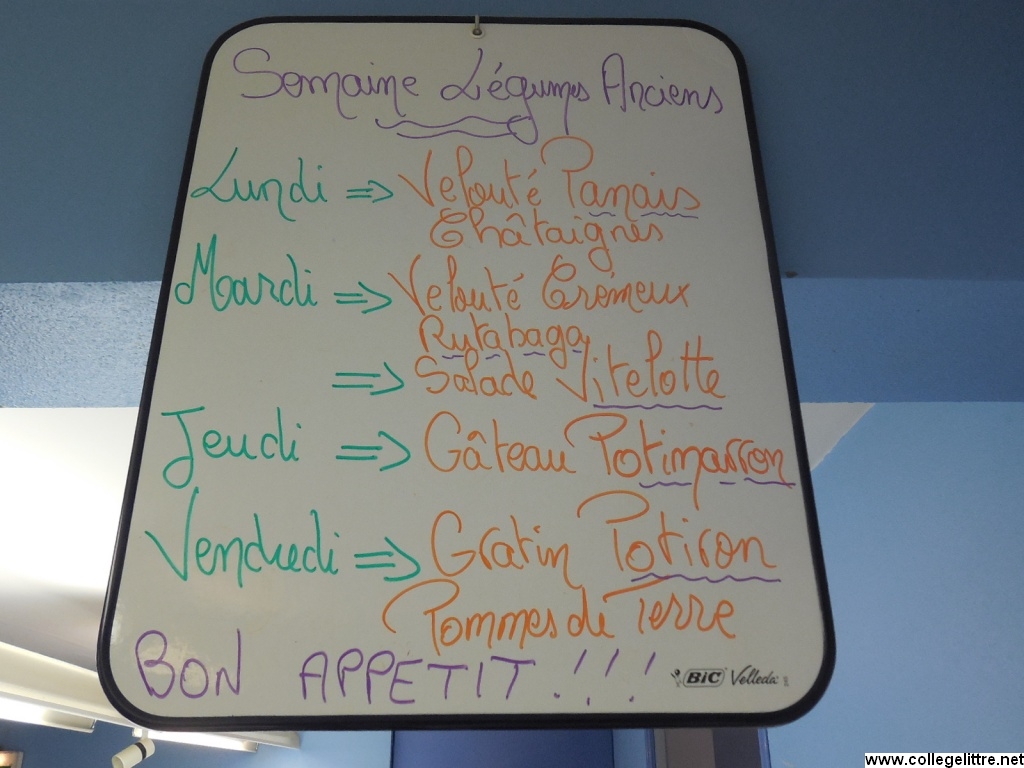 Semaine Légumes Anciens
Lundi => Velouté Panais
Châtaignes
Mardi => Velouté Crémeux
Rutabaga
=> Salade Vitelotte
Jeudi => Gâteau Potimarron
Vendredi => Gratin Potiron
Pommes de Terre
BON APPÉTIT !!!
BIC Velleda
www.collegelittre.net